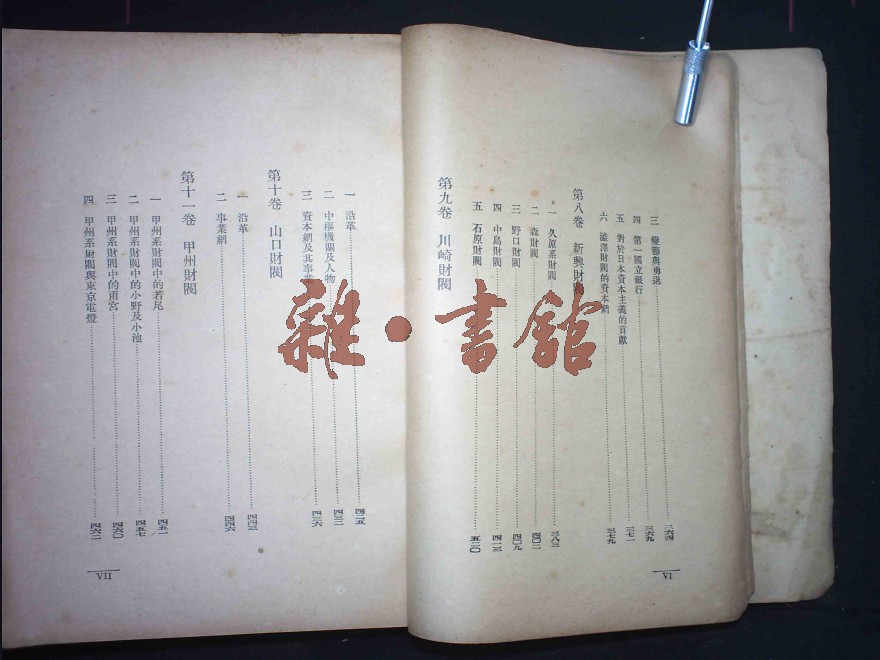 三 變節與勇退 三六四
四 第一國立銀行 三六九
五 對於日本資本主義的貢獻 三七一
六 澁澤財閥的資本網 三七九
第八卷 新興財閥
一 久原系財閥 三八三
二 森財閥 四〇二
三 野口財閥 四〇九
四 中島財閥 四一三
五 石原財閥 五二〇
第九卷 川崎財閥
VI
一 沿革 四二五
二 中樞機關及人物 四三二
三 資本網及其事業 四三六
第十卷 山口財閥
一 沿革 四四三
二 事業網 四四六
第十一卷 甲州財閥
一 甲州系財閥中的若尾 四五一
二 甲州系財閥中的小野及小池 四五七
三 甲州系財閥中的雨宮 四六〇
四 甲州系財閥與東京電燈 四六二
VII
雜·書館